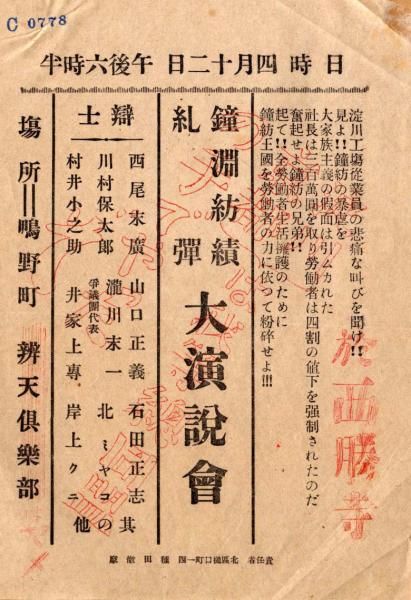 C 0778
日時 四月十二日 午後六時半
淀川工場従業員の悲痛な叫びを聞け!!
見よ!!鐘紡の暴虐を
大家族主義の假面は引ムカれた
社長は三百萬円を取り勞働者は四割の値下を强制されたのだ
奮起せよ鐘紡の兄弟!!
起て!!全勞働者生活擁護のために
鐘紡王國を勞働者の力に依つて粉砕せよ!!!
鐘淵紡績
糺彈
大演說會
辯士
西尾末廣 山口正義 石田正志
川村保太郎 瀧川末一 北ミヤコ
爭議團代表
村井小之助 井家上專 岸上クニ
其の他
場所＝鴫野町 辨天俱樂部
責任者 北區樋口町一四 種田
於西勝寺